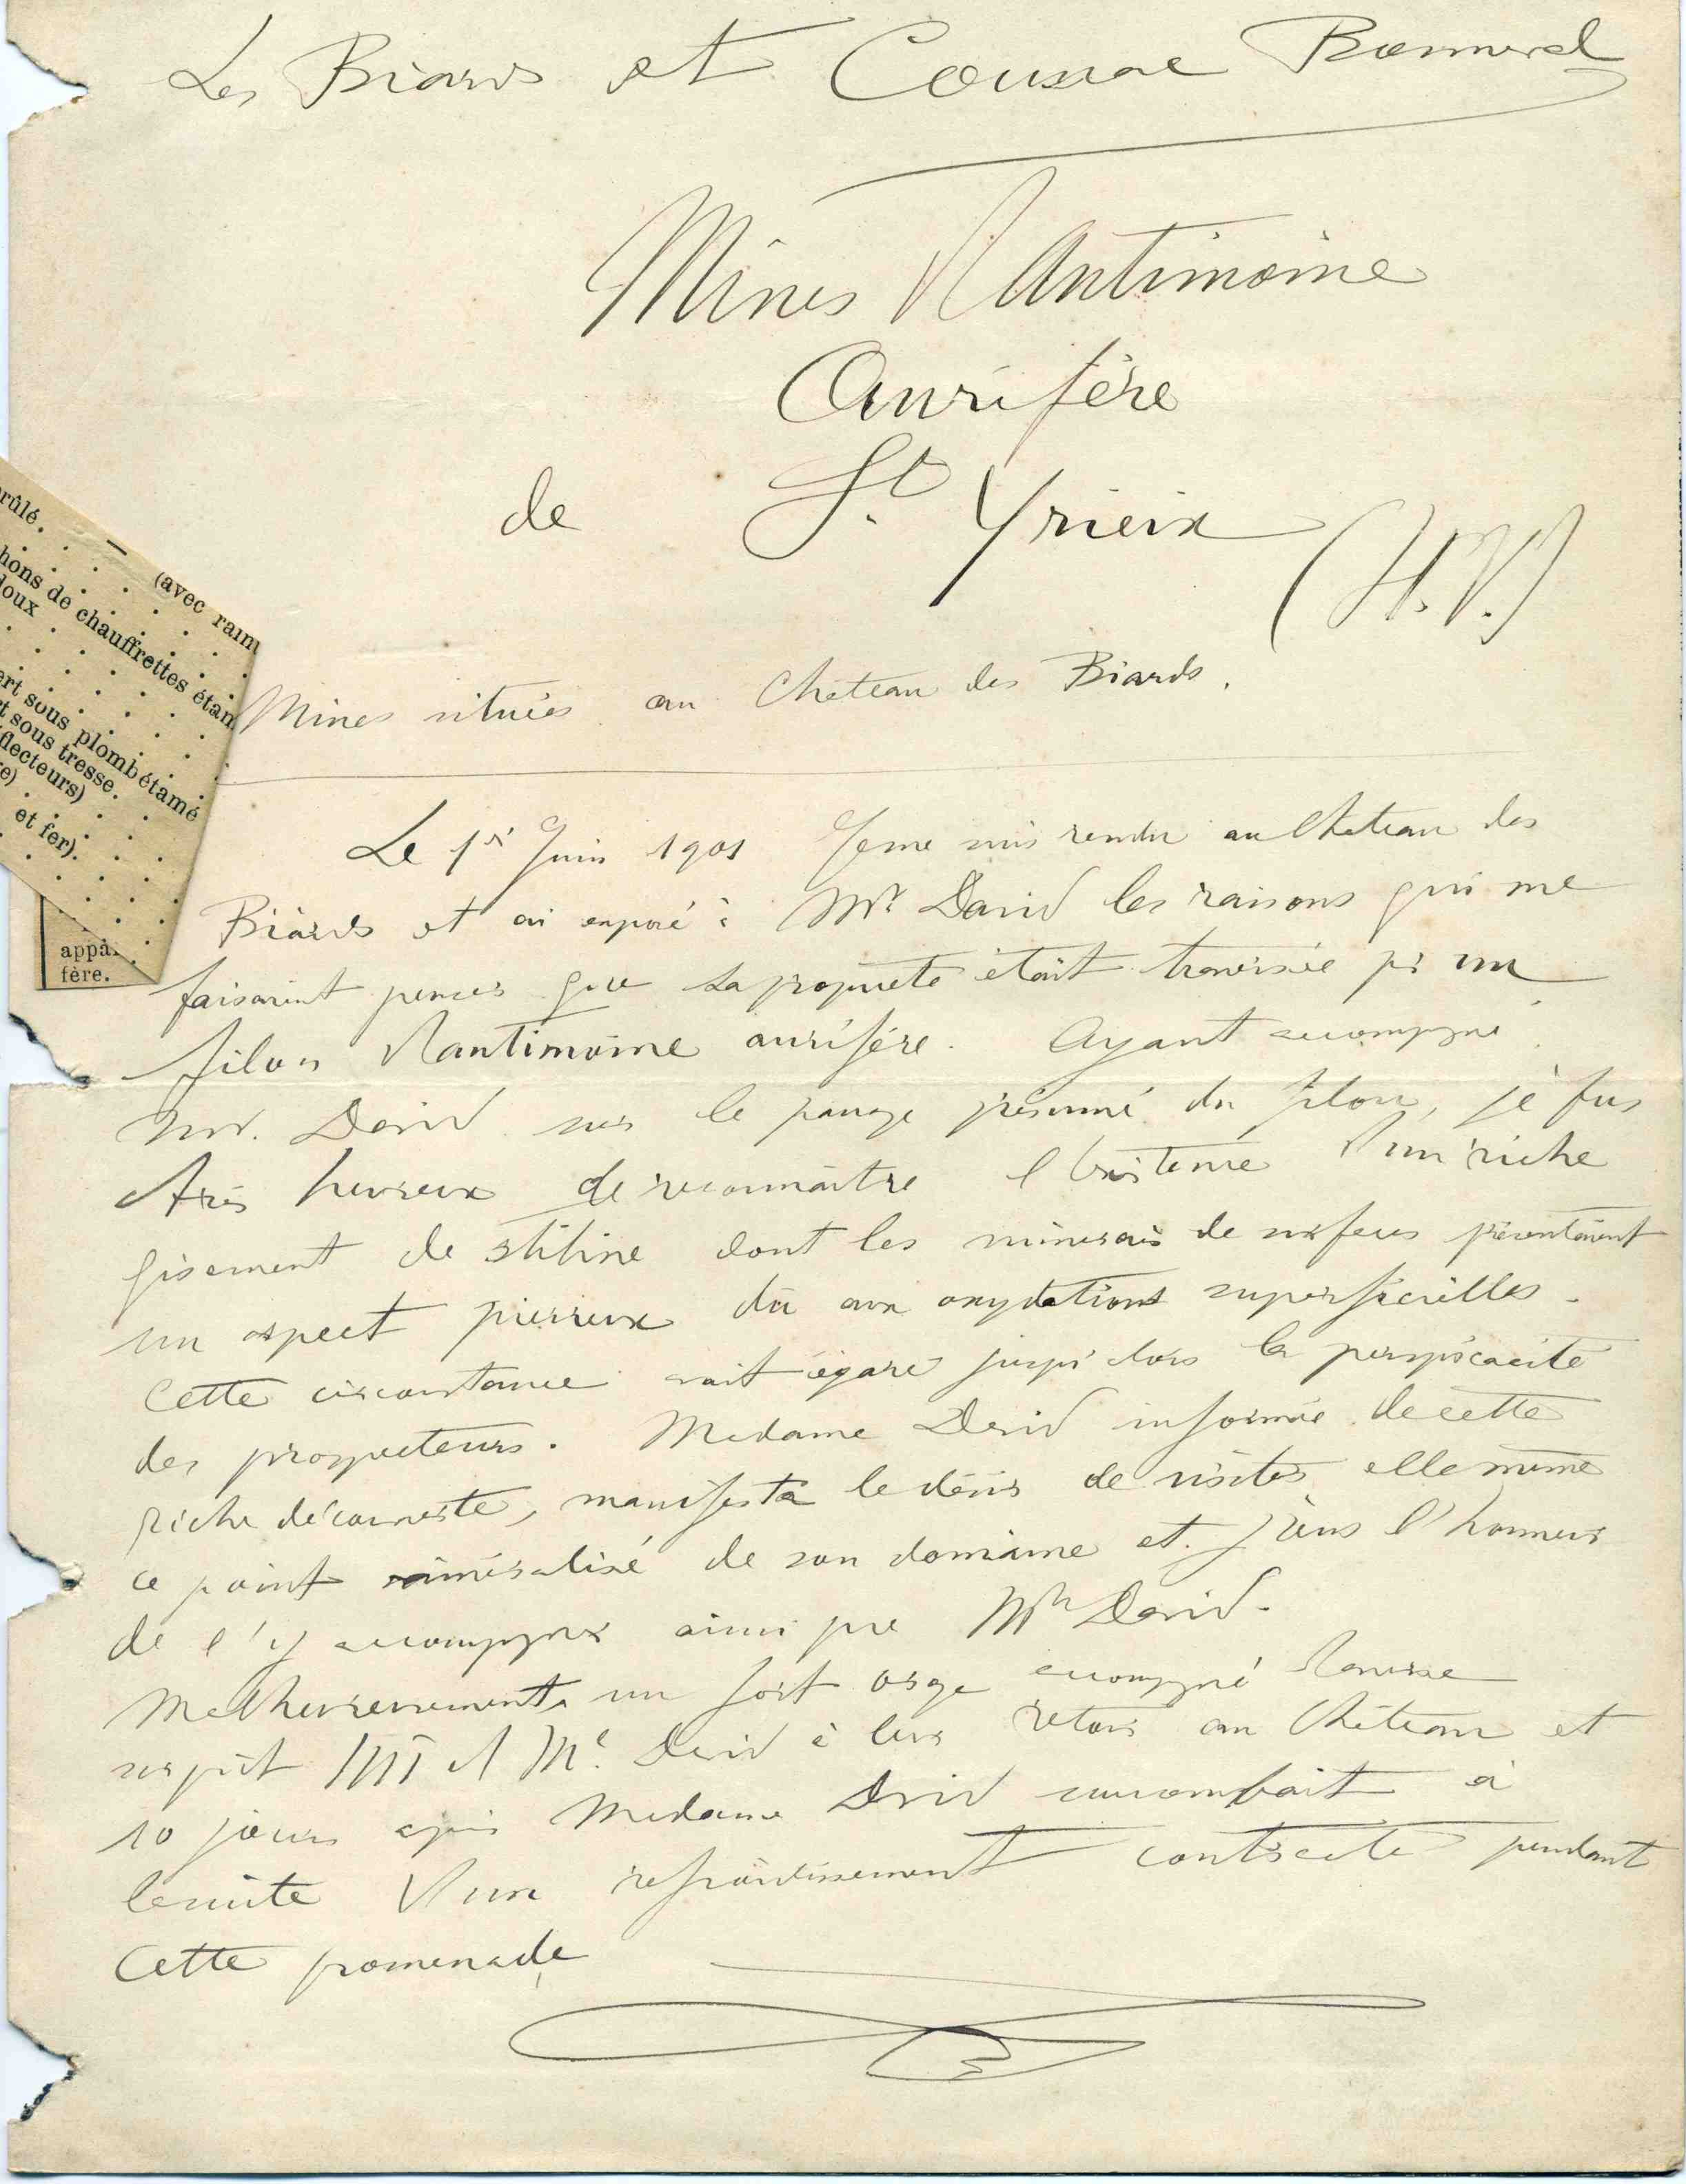 Les Biards et Coussac Bonneval
Mines d'Antimoine
Aurifère
de St. Yrieix
(H.V.)
Mines situées au Château des Biards.
Le 1er Juin 1901 Je me suis rendu au Château des
Biards et ai exposé à Mr David les raisons qui me
faisaient penser que sa propriété était traversée pr un
filon d'antimoine aurifère. Ayant accompagné
Mr. David sur le passage présumé du filon, je fus
très heureux de reconnaître l'existence d'un riche
gisement de stibine dont les minerais de surfaces présentaient
un aspect pierreux dû aux oxydations superficielles.
Cette circonstance avait égaré jusqu'alors la perspicacité
des prospecteurs. Madame David informée de cette
riche découverte, manifesta le désir de visiter elle même
ce point minéralisé de son domaine et j'eus l'honneur
de l'y accompagner ainsi que Mr David.
Malheureusement un fort orage accompagné d'averse
surprit Mr et Me. David à leur retour au Château et
10 jours après Madame David succombait à
la suite d'un refroidissement contracté pendant
Cette promenade
rûlé.
(avec rainu
hons de chauffrettes étam
loux
ert sous plomb étamé
t sous tresse.
flecteurs)
re)
et fer).
appa
fère.